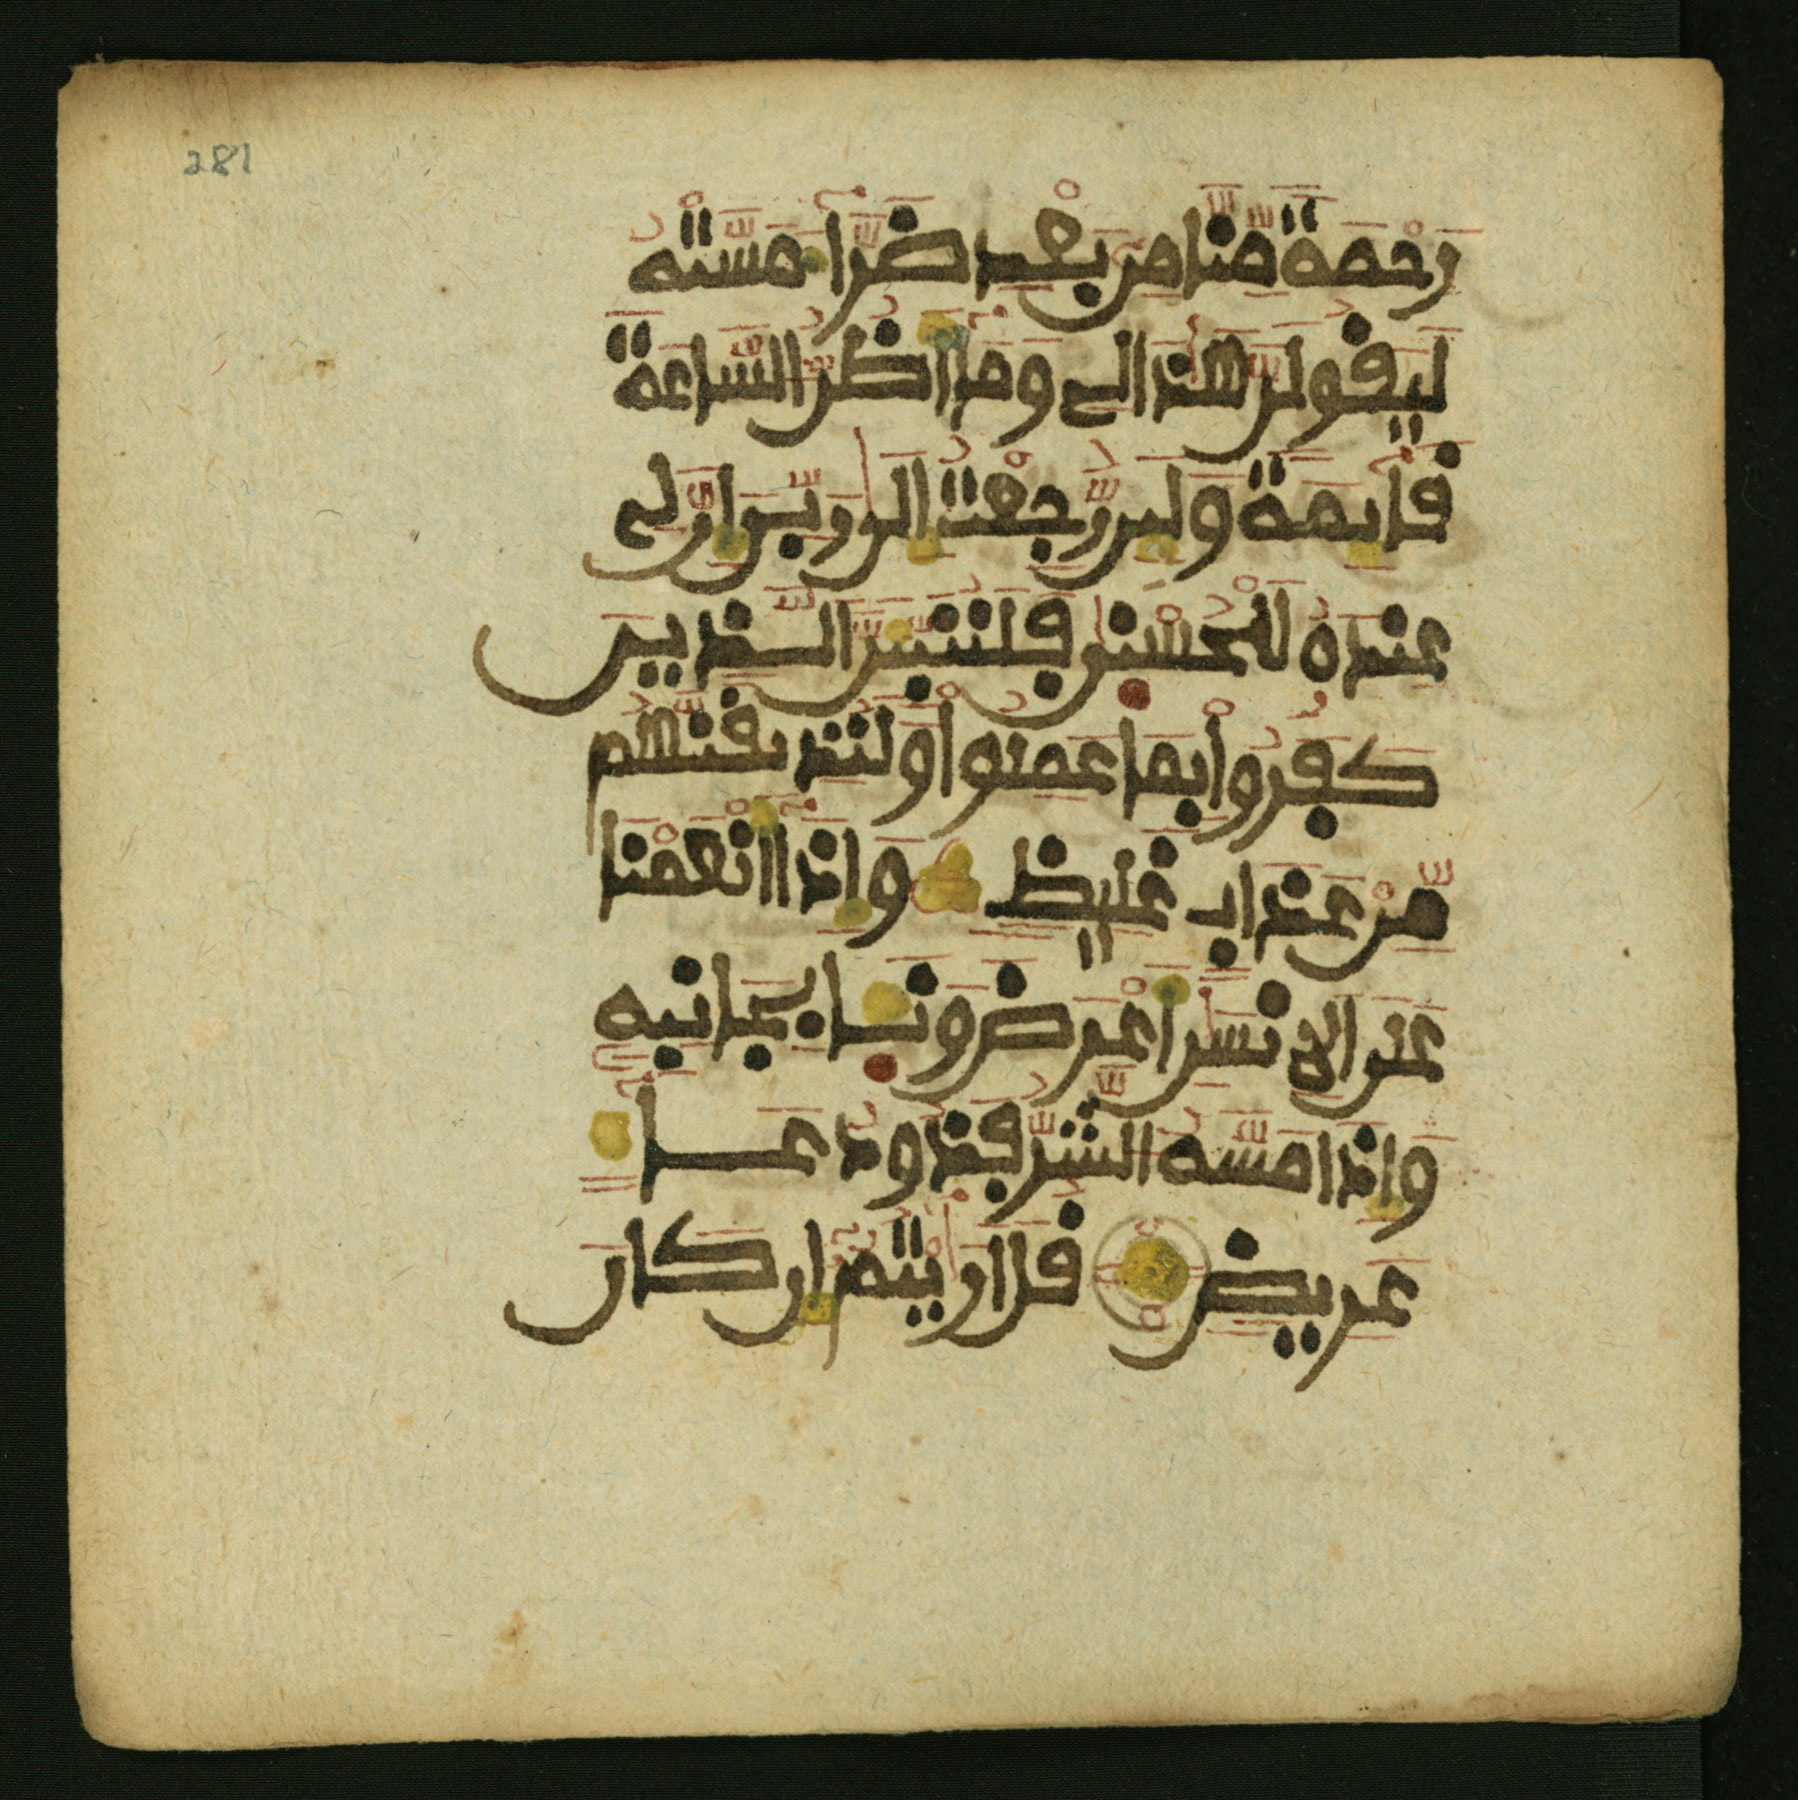 281
رَحْمَةً مِّنَّا مِنۢ بَعْدِ ضَرَّآءَ مَسَّتْهُ
لَيَقُولَنَّ هَٰذَا لِے وَمَآ أَظُنُّ السَّاعَةَ
قَآئِمَةً وَلَئِن رُّجِعْتُ إِلَىٰ رَبِّيَ إِنَّ لِے
عِندَهُۥ لَلْحُسْنَىٰ فَلَنُنَبِّئَنَّ الَّذِينَ
كَفَرُوا۟ بِمَا عَمِلُوا۟ وَلَنُذِيقَنَّهُم
مِّنْ عَذَابٍ غَلِيظٍ وَإِذَآ أَنْعَمْنَا
عَلَى الْإِنسَٰنِ أَعْرَضَ وَنَـَٔا بِجَانِبِهِۦ
وَإِذَا مَسَّهُ الشَّرُّ فَذُو دُعَآءٍ
عَرِيضٍ قُلْ أَرَٰيْتُمْ إِن كَانَ